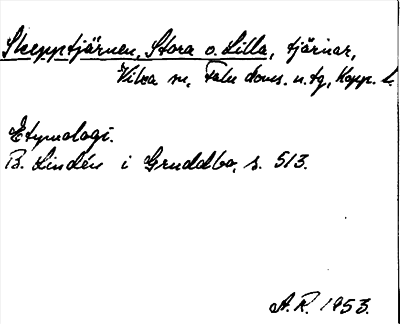 Skepptjärnen, Stora o. Lilla, tjärnar,
Vika sn, Falu doms. n. tg, Kopp. l.
Etymologi.
B. Lindén i Gruddbo, s. 513.
A.R. 1953.